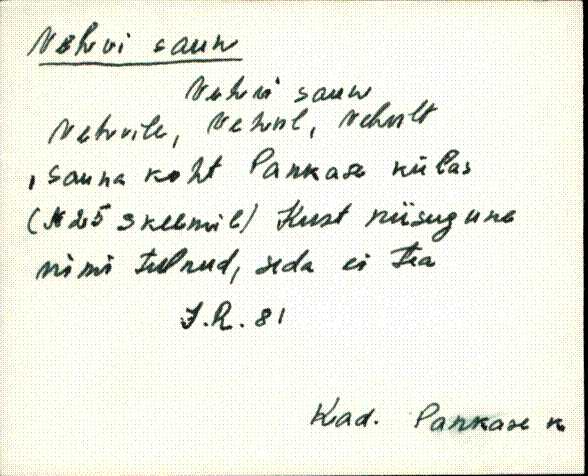 Nehvi saun
Nehvi saun
Nehvile, Nehvil, Nehvilt
, sauna koht Pankase külas
(N 25 skeemil) Kust niisugune
nimi tulnud, seda ei tea
J.R. 81
Kad. Pankase k